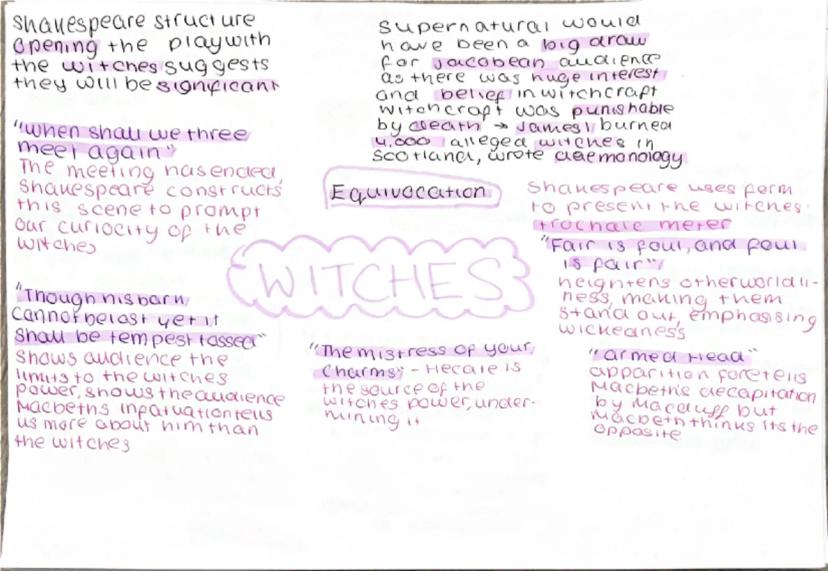 Shakespeare structure
opening the play with
the witches suggests
they will be significant
"When shall we three
meet again"
The meeting has ended,
Shakespeare constructs
this scene to prompt
our curiocity of the
witches
"Though his bark
cannot be lost yet it
shall be tempest tossed"
shows audience the
limits to the witches
power, shows the audience
Macbeths infatuation tells
us more about him than
the witches
Supernatural would
have been a big draw
for Jacobean audience
as there was huge interest
and belief in witchcraft
witchcraft was punishable
by death → James I burned
4,000 alleged witches in
Scotland, wrote daemonology
Equivocation
WITCHES
"The mistress of your
charms" - Hecate is
the source of the
witches power, under-
mining it
Shakespeare uses form
to present the witches.
trochaic meter
"Fair is foul, and foul
is fair"
heightens otherworldli-
ness, making them
stand out, emphasising
wickedness
"armed Head"
apparition foretells
Macbeths decapitation
by Macduff but
Macbeth thinks its the
opposite